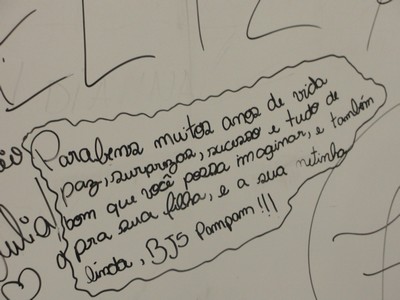 Parabens muitos anos de vida
paz, surprezas, sucesso e tudo de
bom que você possa imaginar, e também
pra sua filha, e a sua netinha
linda, BJS Pampam!!!